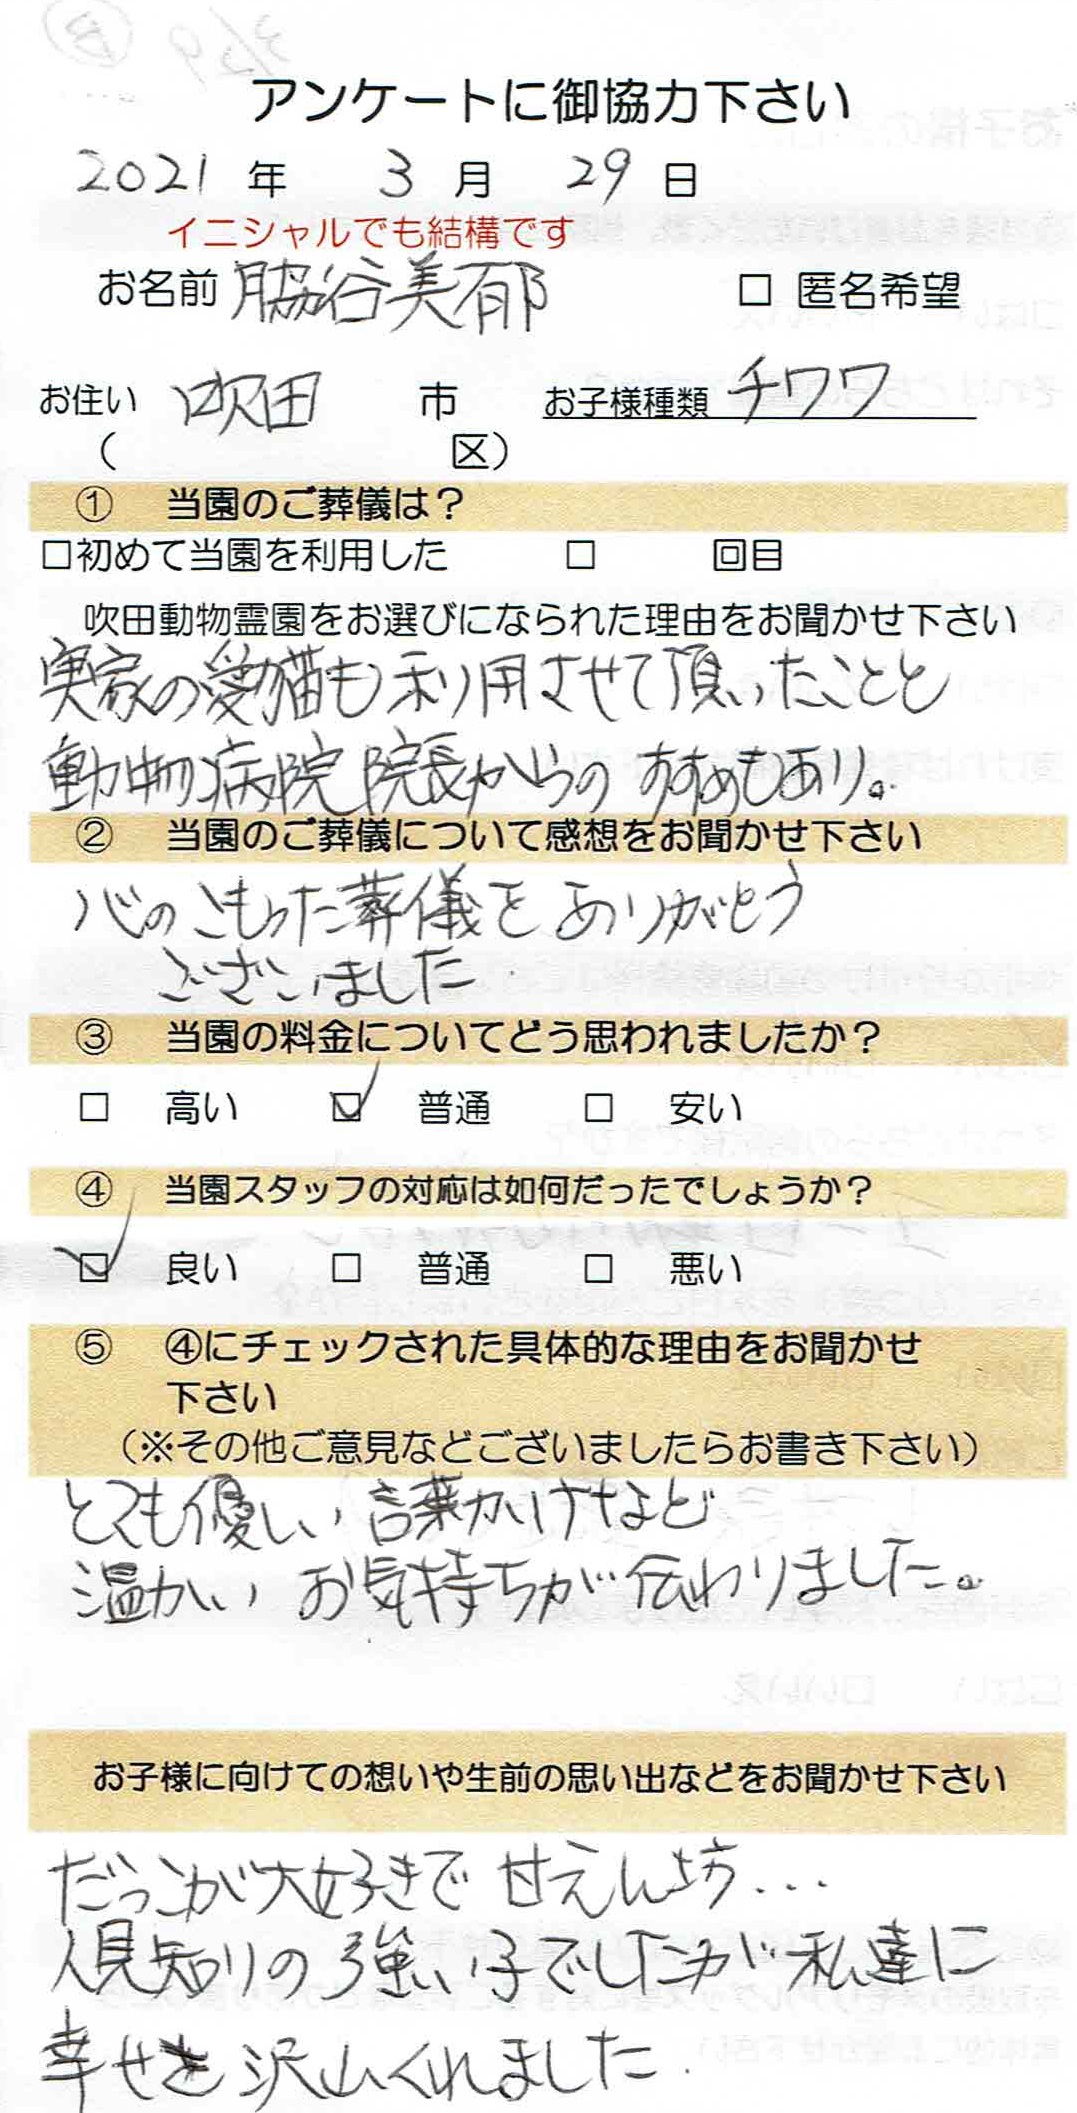 アンケートに御協力下さい
2021 年 3 月 29 日
イニシャルでも結構です
お名前 脇谷美郁 □ 匿名希望
お住い 吹田 市 お子様種類 チワワ
( 区)
① 当園のご葬儀は？
□初めて当園を利用した □ 回目
吹田動物霊園をお選びになられた理由をお聞かせ下さい
実家の愛猫も利用させて頂いたことと
動物病院 院長からの すすめもあり。
② 当園のご葬儀について感想をお聞かせ下さい
心のこもった葬儀を ありがとう
ございました
③ 当園の料金についてどう思われましたか？
□ 高い ☑ 普通 □ 安い
④ 当園スタッフの対応は如何だったでしょうか？
☑ 良い □ 普通 □ 悪い
⑤ ④にチェックされた具体的な理由をお聞かせ
下さい
（※その他ご意見などございましたらお書き下さい）
とても優しい 言葉かけなど
温かい お気持ちが 伝わりました。
お子様に向けての想いや生前の思い出などをお聞かせ下さい
だっこが大好きで 甘えん坊...
人見知りの 強い子でしたが 私達に
幸せを 沢山くれました.